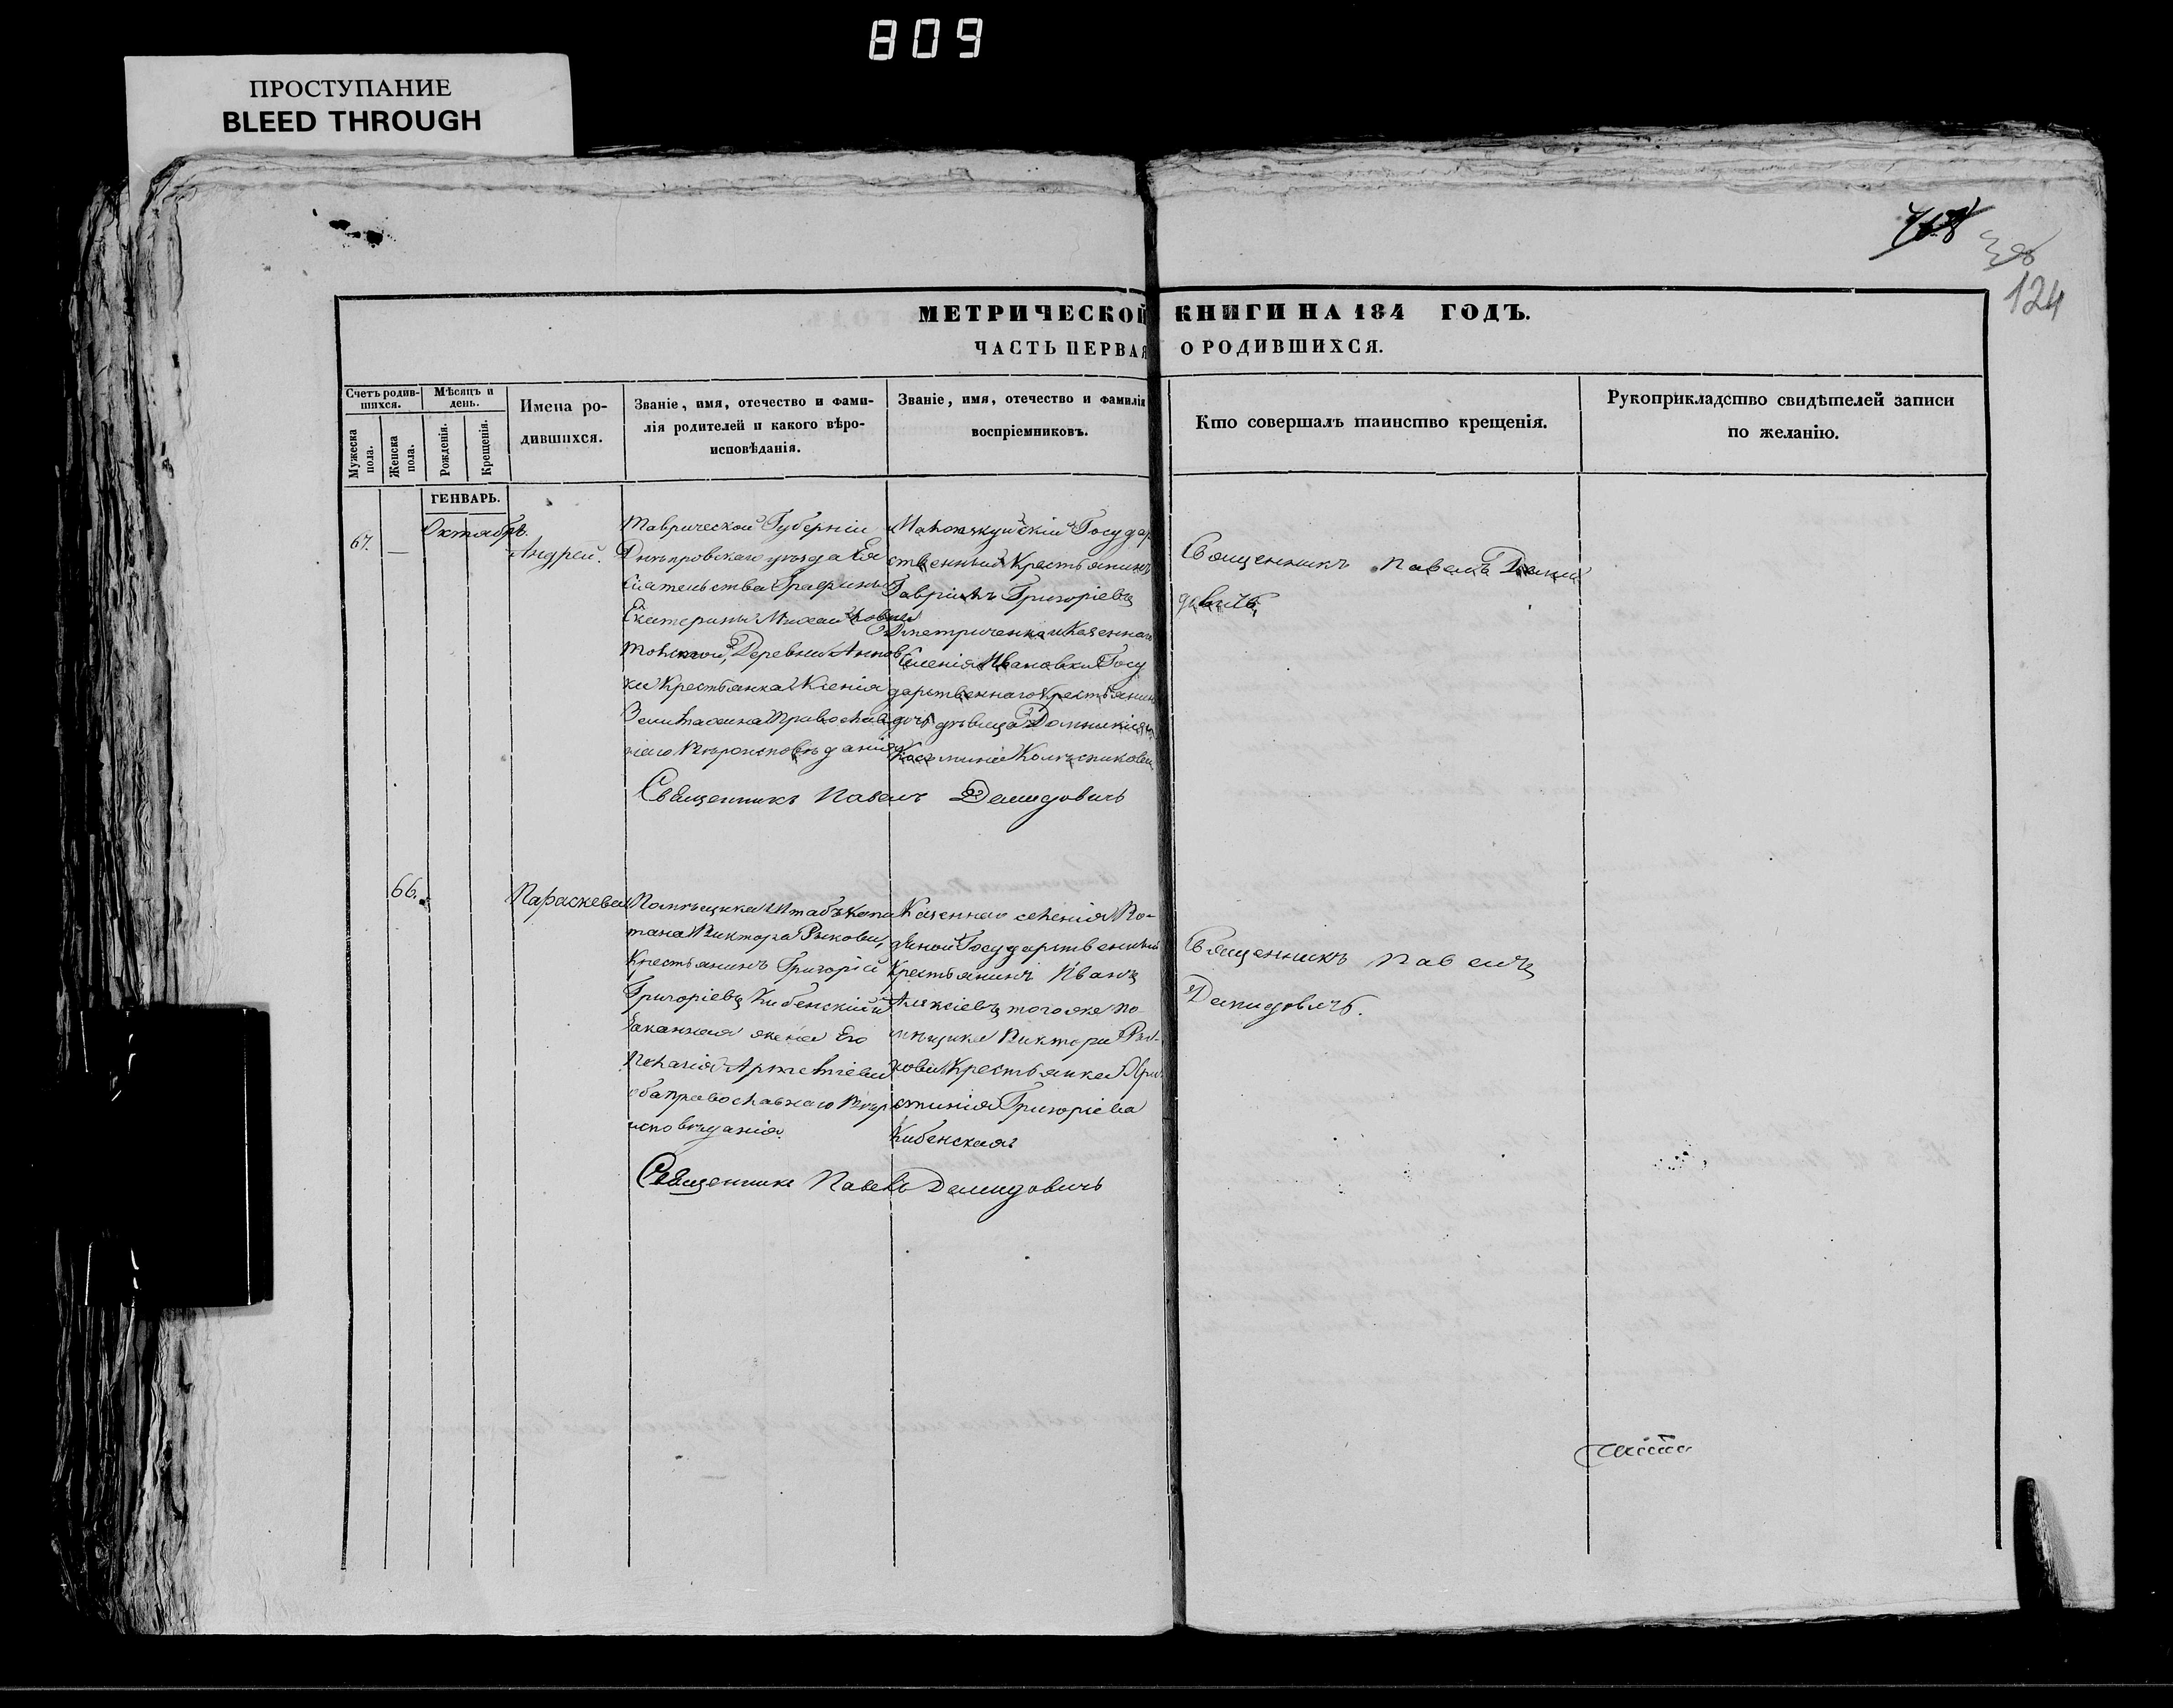 809
ПРОСТУПАНИЕ
BLEED THROUGH
124
МЕТРИЧЕСКОЙ КНИГИ НА 184 ГОДЪ.
ЧАСТЬ ПЕРВАЯ О РОДИВШИХСЯ.
Счетъ родив-
шихся.
Мужеска пола.
Женска пола.
Мѣсяцъ и
день.
Рожденія.
Крещенія.
Имена ро-
дившихся.
Званіе, имя, отечество и фами-
лія родителей и какого вѣро-
исповѣданія.
Званіе, имя, отечество и фамилія
воспріемниковъ.
Кто совершалъ таинство крещенія.
Рукоприкладство свидѣтелей записи
по желанію.
ГЕНВАРЬ.
67.
Октябрь.
Андрей.
Таврической Губерніи
Днѣпровскаго уѣзда Ея
Сіятельства Графини
Екатерины
Деревни Аннов
ки Крестьянка Ксенія
Православ
наго Вѣроисповѣданія
Государ
ственный Крестьянинъ
Гавріилъ Григоріевъ
Дметриченко и Казеннаго
Селенія Ивановки Госу
дарственнаго Крестьянина
дочь дѣвица Домникія
Священникъ Павелъ Деми
довичь
Священникъ Павелъ Демидовичь
66.
Параскева
Помѣщика Штабъ Капи
тана Виктора Рыкова,
Крестьянинъ Григорій
Григоріевъ Кибенскій и
Законная жена Его
Пелагія
оба православнаго Вѣро
исповѣданія.
Казеннаго селенія
Государственный
Крестьянинъ Иванъ
Алексіевъ того же по
мѣщика Виктора Ры-
кова Крестьянка Хри
стинія Григоріева
Кибенская
Священникъ Павелъ
Демидовичь.
Священникъ Павелъ Демидовичь